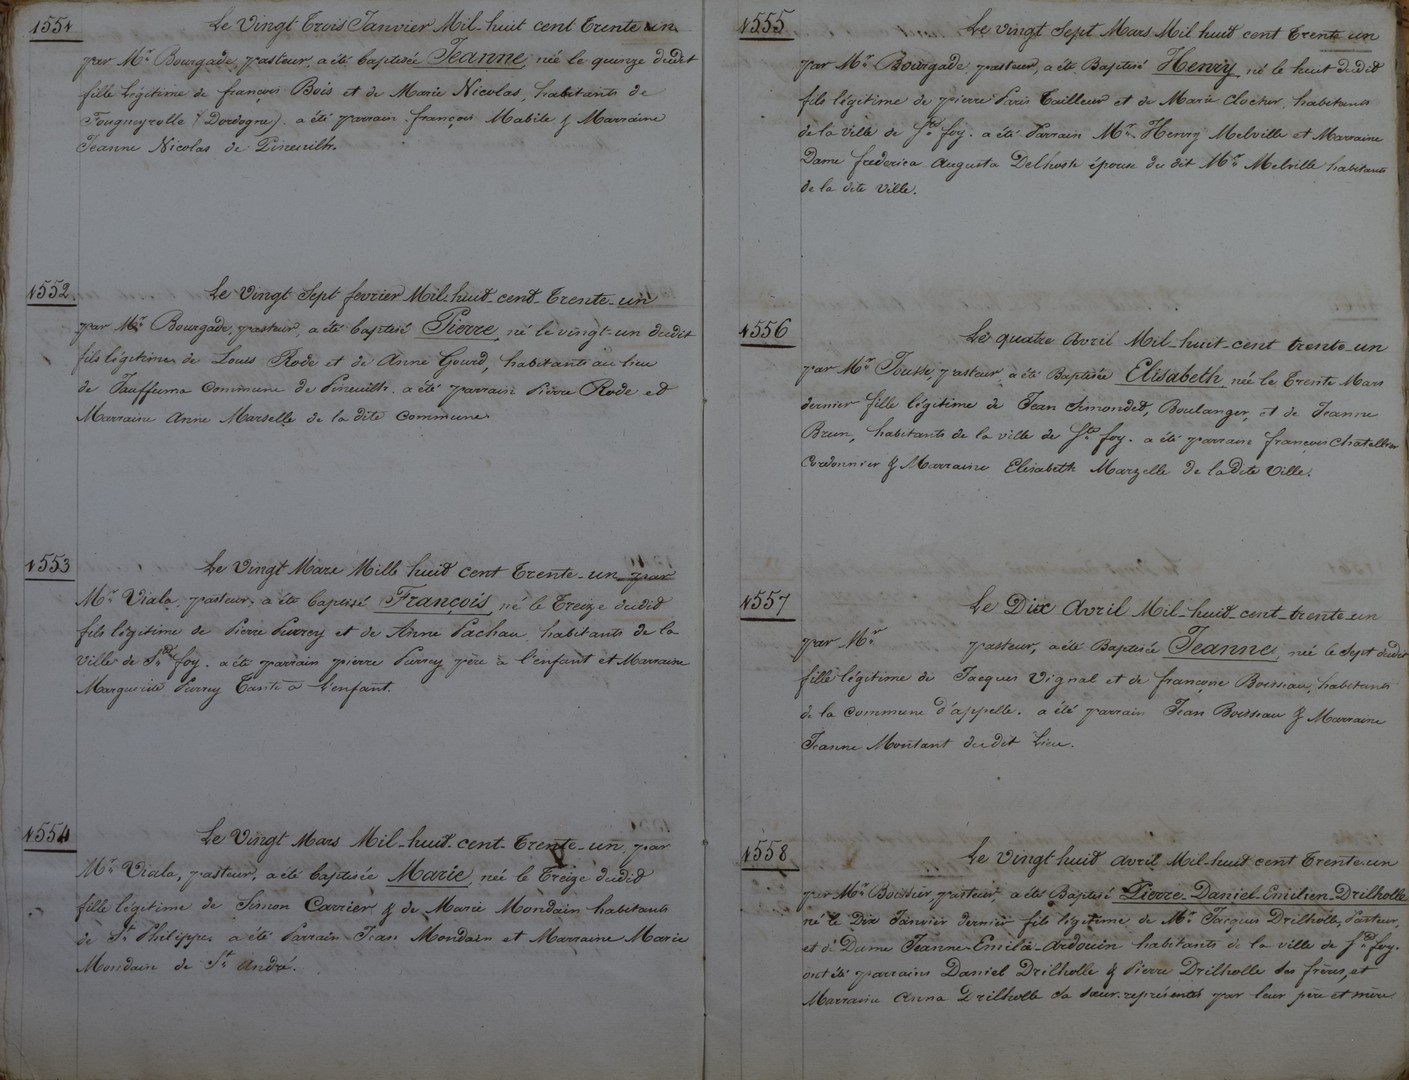 1551
Le Vingt Trois Janvier Mil-huit cent Trente un
par Mr Bourgade, pasteur, a été baptisée Jeanne, née le quinze dudit
fille légitime de françois Bois et de Marie Nicolas, habitants de
Fougueyrolle (Dordogne). a été parrain françois Mabile & Marraine
Jeanne Nicolas de Pineuilh.
1552
Le Vingt Sept fevrier Mil-huit-cent-Trente-un
par Mr Bourgade, pasteur, a été baptisé Pierre, né le vingt-un dudit
fils légitime de Louis Rode et de Anne Gourd, habitants au lieu
de Commune de Pineuilh. a été parrain Pierre Rode et
Marraine Anne Marselle de la dite commune
1553
Le Vingt Mars Mille huit cent Trente-un par
Mr Viala, pasteur, a été baptisé François, né le Treize dudit
fils légitime de Pierre Purrey et de Anne Pachau, habitants de la
Ville de Ste foy. a été parrain pierre Purrey père à l'enfant et Marraine
Marguerite Purrey Tante à l'enfant.
1554
Le Vingt Mars Mil-huit-cent-Trente-un, par
Mr Viala, pasteur, a été baptisée Marie, née le Treize dudit
fille légitime de Simon Carrier & de Marie Mondain habitants
de St Philippe. a été Parrain Jean Mondain et Marraine Marie
Mondain de St André.
1555
Le vingt Sept Mars Mil huit cent Trente un
par Mr Bourgade pasteur, a été Baptisé Henry, né le huit dudit
fils légitime de pierre Paris Tailleur et de Marie Clocher, habitants
de la ville de Ste foy. a été Parrain Mr Henry Melville et Marraine
Dame frederica Augusta Delhoste épouse du dit Mr Melville habitants
de la dite Ville.
1556
Le quatre Avril Mil-huit-cent trente-un
par Mr pasteur, a été Baptisée Elisabeth, née le Trente Mars
dernier fille légitime de Jean Simondet, Boulanger, et de Jeanne
Brun, habitants de la ville de Ste foy. a été parrain françois Chatellier
Cordonnier & Marraine Elisabeth Marzelle de la dite Ville.
1557
Le Dix Avril Mil-huit-cent-trente-un
par Mr pasteur, a été Baptisée Jeanne, née le Sept dudit
fille légitime de Jacques Vignal et de françoise Boisseau, habitants
de la commune d'appelle. a été parrain Jean Boisseau & Marraine
Jeanne Montant dudit Lieu.
1558
Le Vingt huit avril Mil-huit cent Trente-un
par Mr Boissier, pasteur, a été Baptisé Pierre-Daniel-Emilien Drilholle
né le Dix Janvier dernier fils légitime de Mr Jacques Drilholle, Pasteur,
et de Dame Jeanne-Emilie-Ardouin habitants de la ville de Ste foy.
ont été parrains Daniel Drilholle & Pierre Drilholle ses frères, et
Marraine Anna Drilholle sa sœur. représentés par leur père et mère